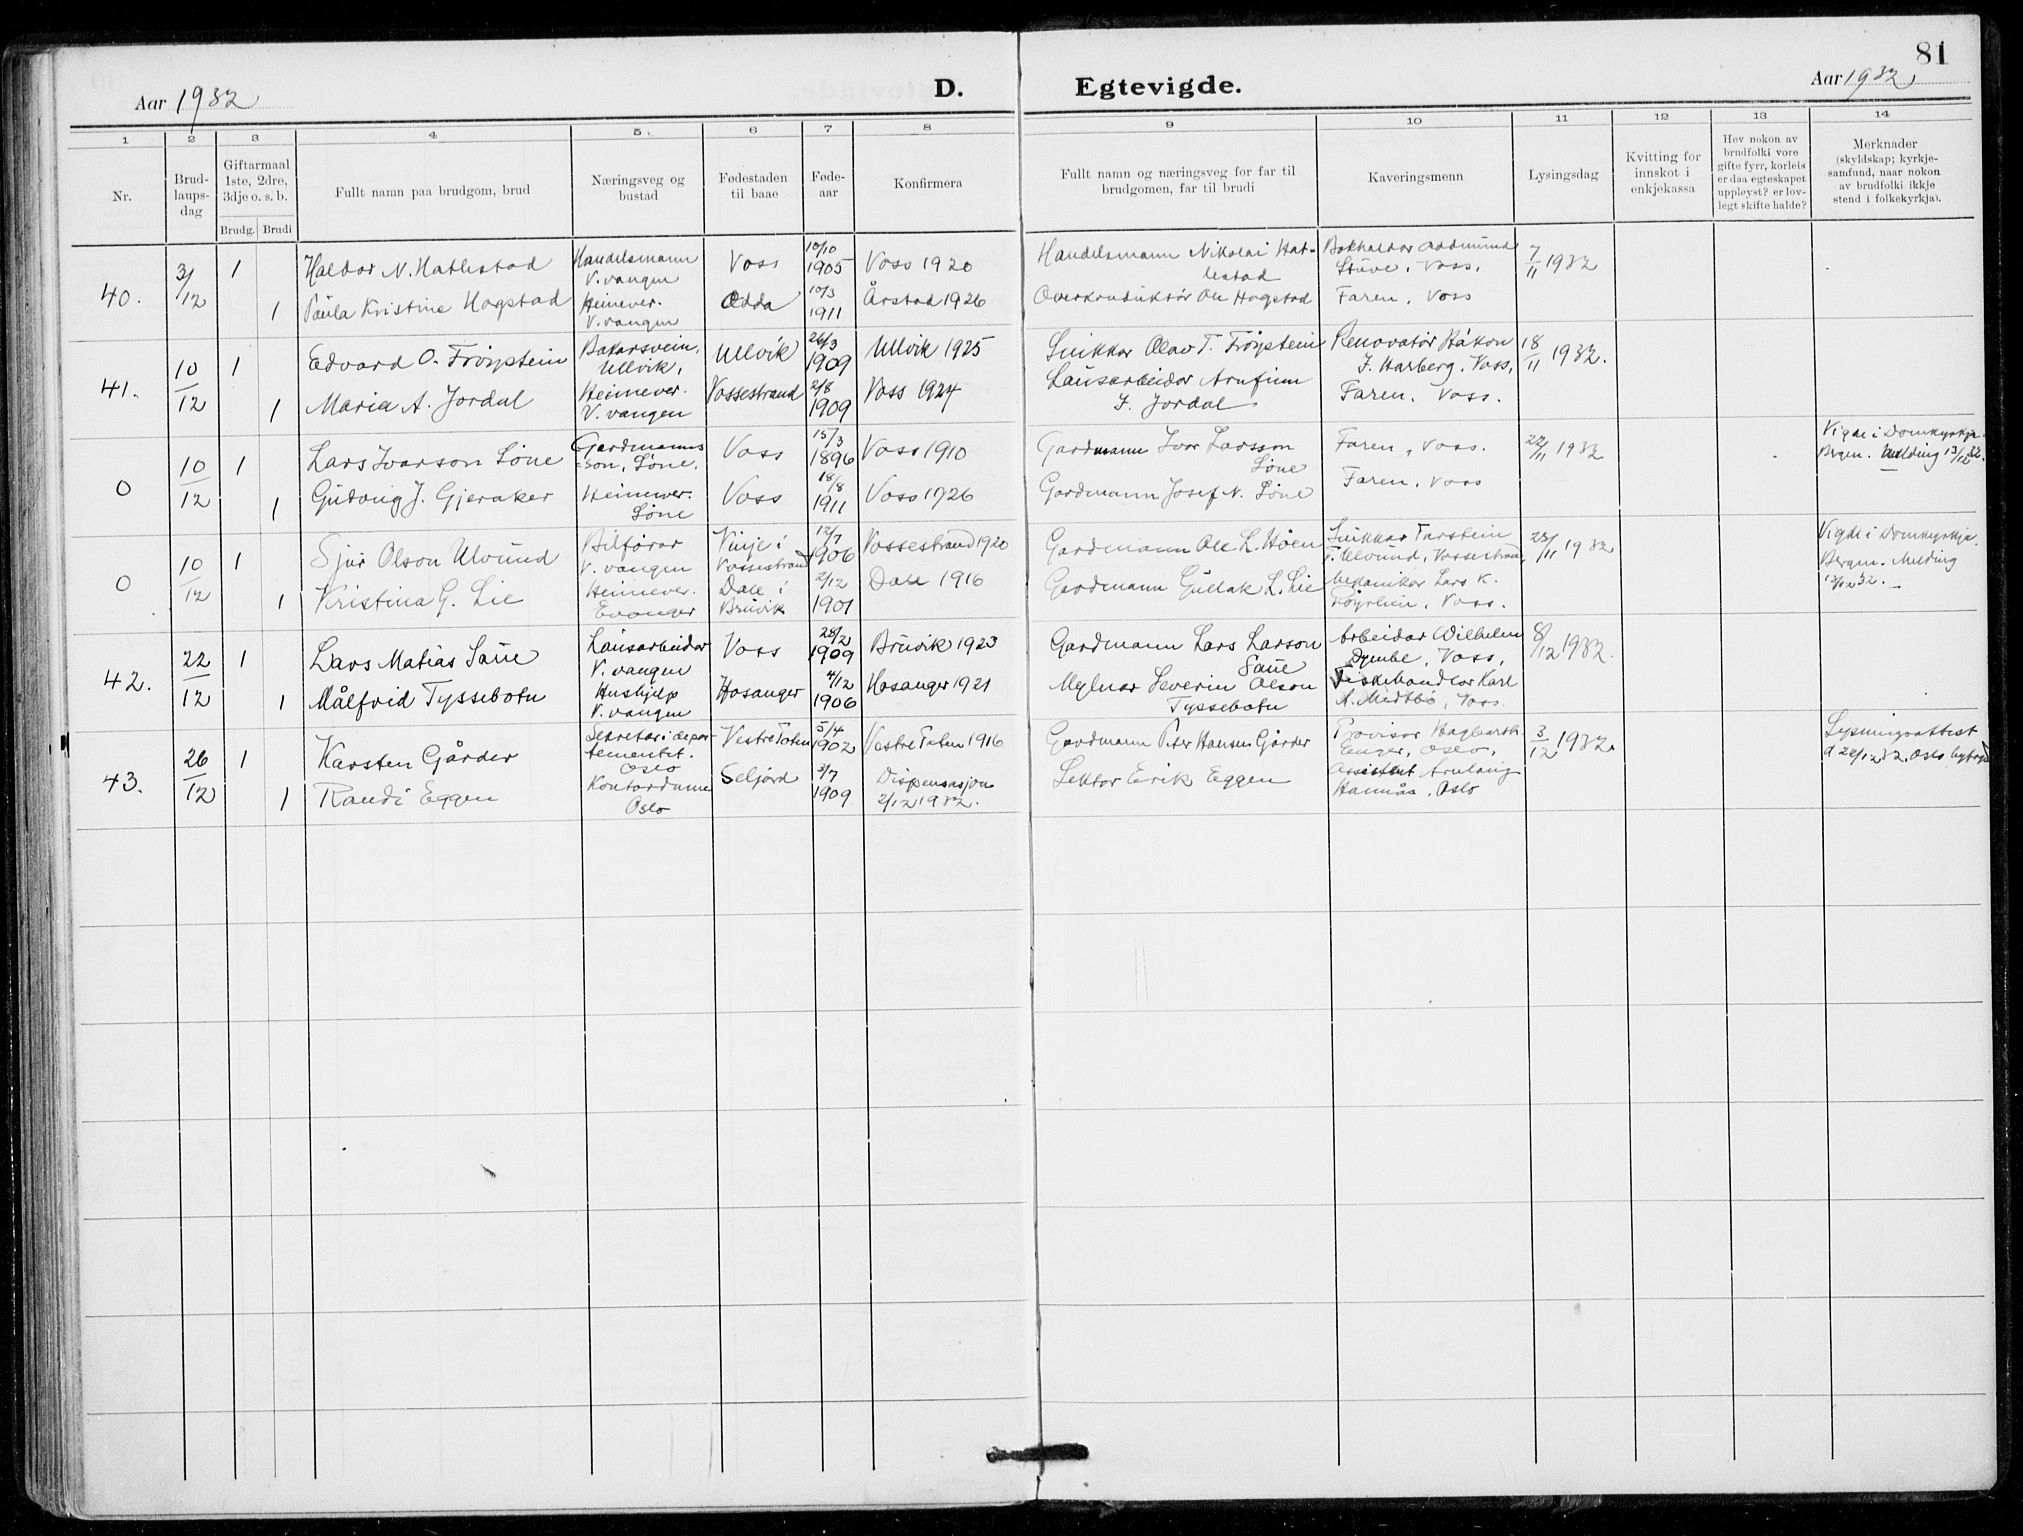 81
Aar 1932
D. Egtevigde.
Aar 1932
1 2 3 4 5. 6 7 8 9 10 11 12 13 14
Nr.
Brud-
laups-
dag
Giftarmaal
1ste, 2dre,
3dje o. s. b.
Brudg. Brudi
Fullt namn paa brudgom, brud
Næringsveg og
bustad
Fødestaden
til baae
Føde-
aar
Konfirmera
Fullt namn og næringsveg for far til
brudgomen, far til brudi
Kaveringsmenn
Lysingsdag
Kvitting for
innskot i
enkjekassa
Hev nokon av
brudfolki vore
gifte fyrr, korleis
er daa egteskapet
uppløyst? er lov-
legt skifte halde?
Merknader
(skyldskap; kyrkje-
samfund, naar nokon
av brudfolki ikkje
stend i folkekyrkja).
40.
3/12
1
Haldor N. Hatlestad
Handelsmann
V. vangen
Voss
10/10
1905
Voss 1920
Handelsmann Nikolai Hat-
lestad
Bokhaldar Oddmund
Stuve, Voss.
7/11 1932
1
Paula Kristine Hogstad
Heimever.
V. vangen
Odda
10/3
1911
Årstad 1926
Overkonduktör Ole Hogstad
Faren, Voss
41.
10/12
1
Edvard O. Fröystein
Bakarsvein,
Ullvik,
Ullvik
26/3
1909
Ullvik 1925
Snikkar Olav T. Fröystein
Renovatör Håkon
J. Harberg, Voss,
18/11 1932.
1
Maria A. Jordal
Heimever.
V. vangen
Vossestrand
2/8
1909
Voss 1924
Lausarbeidar Arnfinn
J. Jordal
Faren, Voss.
0
10/12
1
Lars Ivarson Löne
Gardmanns
-son, Löne.
Voss
15/3
1896
Voss 1910
Gardmann Ivar Larsson
Löne
Faren, Voss.
22/11 1932
Vigde i Domkyrkja
Bergen. Melding 13/12 32.
1
Gudveig J. Gjeraker
Heimever.
Löne
Voss
18/8
1911
Voss 1926
Gardmann Josef N. Löne
Faren, Voss
0
10/12
1
Sjur Olson Ulvund
Bilförar
V. vangen
Vinje i
Vossestrand
12/7
1906
Vossestrand 1920
Gardmann Ole L. Höen
Snikkar Torstein
T. Ulvund, Vossestrand,
23/11 1932
Vigde i Domkyrkja
Bergen. Melding
13/12 32.
1
Kristina G. Lie
Heimever.
Evanger
Dale i
Bruvik
2/12
1901
Dale 1916
Gardmann Gullak L. Lie
Mekanikar Lars K.
Röyrlien, Voss.
42.
22/12
1
Lars Matias Saue
Lausarbeidar
V. vangen
Voss
28/2
1909
Bruvik 1923
Gardmann Lars Larson
Saue
Arbeidar Wilhelm
Dymbe, Voss,
8/12 1932.
1
Målfrid Tyssebotn
Hushjelp
V. vangen
Hosanger
4/12
1906
Hosanger 1921
Mylnar Severin Olson
Tyssebotn
Fiskehandlar Karl
A. Midtbö, Voss.
43.
26/12
1
Karsten Gårder
Sekretær i depar
tementet.
Oslo
Vestre Toten
5/4
1902
Vestre Toten 1916
Gardmann Peter Hansen Gårder
Provisor Hagbarth
Enger, Oslo,
3/12 1932.
Lysningsattest
d 20/12 32. Oslo
1
Randi Eggen
Kontordame
Oslo
Seljord
3/7
1909
Dispensasjon
2/12 1932.
Lektor Erik Eggen
Assistent
Oslo